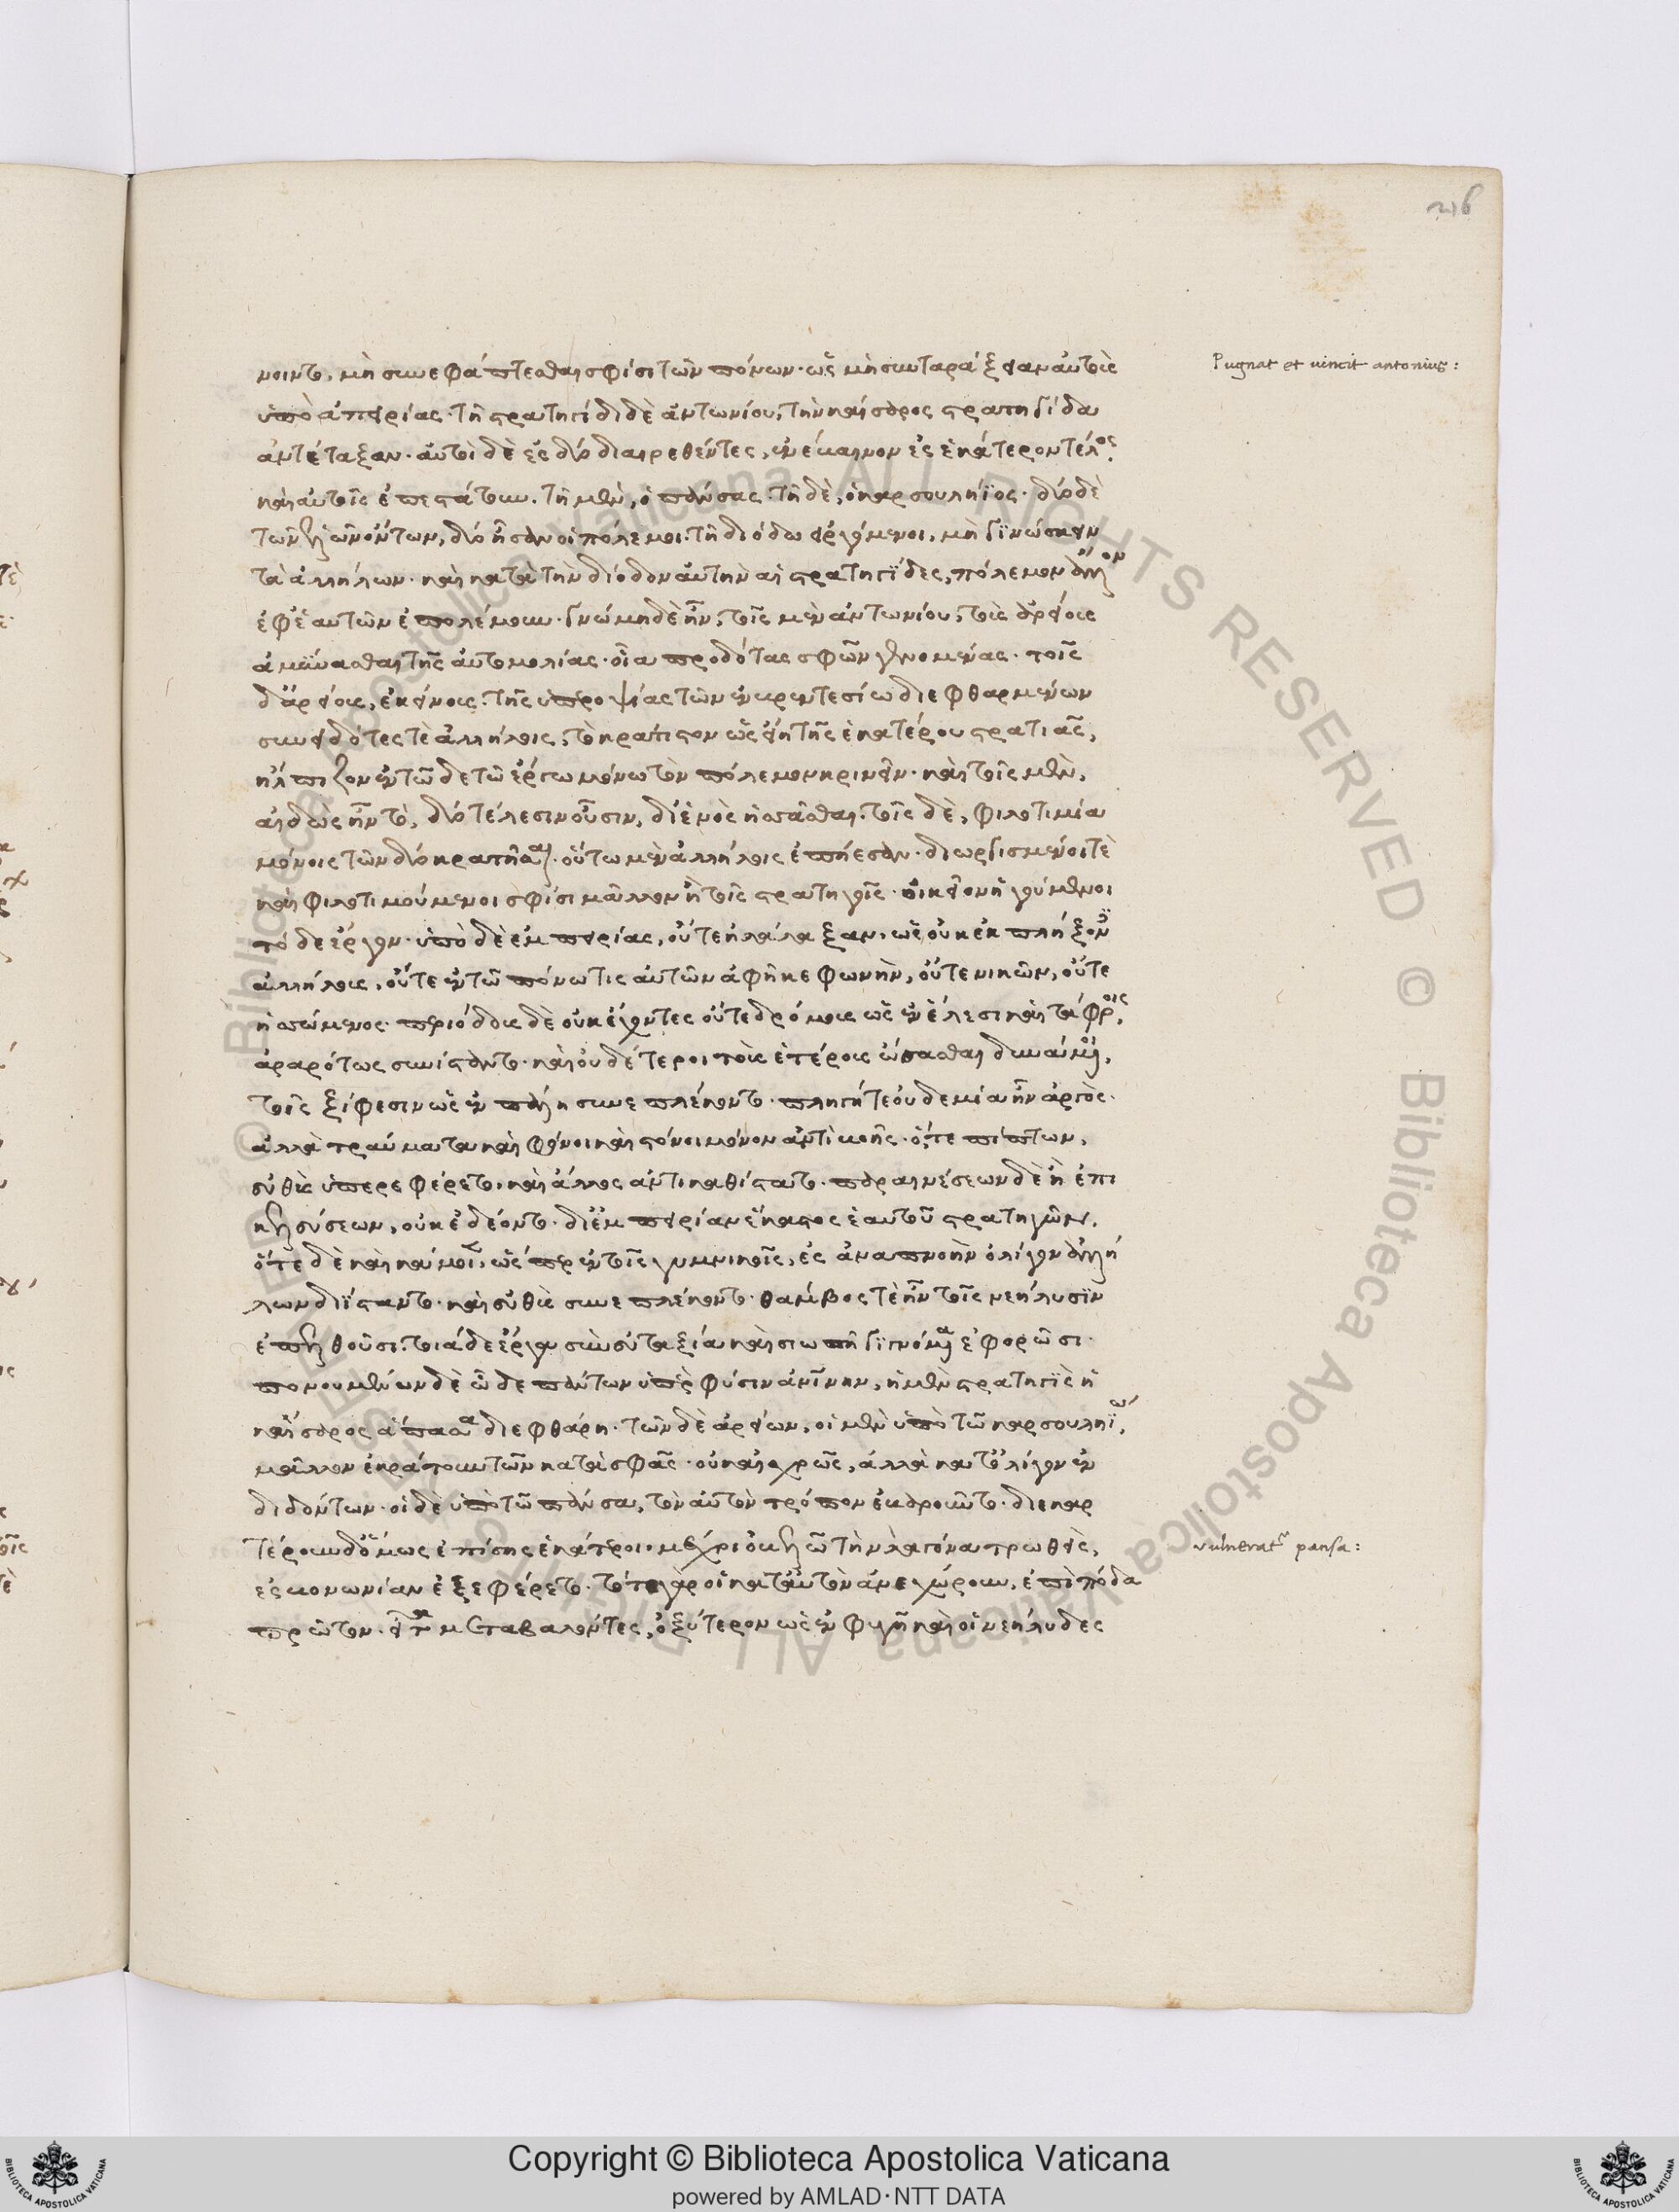 νοιντο, μὴ συνεφάπτεσθαι σφίσι τῶν πόνων· ὡς μὴ συνταράξειαν αὐτοὺς
ὑπὸ ἀπειρίας· τῇ στρατηγίδι δὲ ἀντωνίου, τὴν καίσαρος στρατηγίδα
ἀντέταξαν. αὐτοὶ δὲ ἐς δύο διαιρεθέντες, ἐνέβαινον ἐς ἑκάτερον τέλος,
καὶ αὐτοῖς ἐπεστάτουν. τῇ μὲν, ὁ πάνσας· τῇ δὲ, ὁ καρσουλήϊος· δύο δὲ
τῶν ἑλῶν ὄντων, δύο ἦσαν οἱ πόλεμοι. τῇ διόδω εἰργόμενοι, μὴ γινώσκειν
τὰ ἀλλήλων· καὶ κατὰ τὴν δίοδον αὐτὴν αἱ στρατηγίδες, πόλεμον ἄλλον
ἐφ' ἑαυτῶν ἐπολέμουν· γνώμη δὲ ἦν, τοῖς μὲν ἀντωνίου, τοὺς ἀρείους
ἀμύνασθαι τῆς αὐτομολίας· οἷα προδότας σφῶν γενομένας· τοῖς
δ' ἀρείοις, ἐκείνους τῆς ὑπεροψίας τῶν ἐν βρεντεσίω διεφθαρμένων
συνειδότες τὲ ἀλλήλοις, τὸ κράτιστον ὡς εἴη τῆς ἑκατέρου στρατιᾶς,
ἤλπιζον ἐν τῶδε τῶ ἔργω μόνω τὸν πόλεμον κρινεῖν· καὶ τοῖς μὲν,
αἰδὼς ἦν τὸ, δύο τέλεσιν οὖσιν, δι' ἑνὸς ἡσσᾶσθαι. τοῖς δὲ, φιλοτιμία
μόνοις τῶν δύο κρατῆσαι· οὕτω μὲν ἀλλήλοις ἐπήεσαν· διωργισμένοι τὲ
καὶ φιλοτιμούμενοι σφίσι μᾶλλον ἢ τοῖς στρατηγοῖς· οἰκεῖον ἡγούμενοι
τόδε ἔργον· ὑπὸ δὲ ἐμπειρίας, οὔτε ἠλάλαξαν, ὡς οὐκ ἐκπλήξοντες
ἀλλήλους, οὔτε ἐν τῶ πόνω τις αὐτῶν ἀφῆκε φωνὴν, οὔτε νικῶν, οὔτε
ἡσσώμενος· περιόδους δὲ οὐκ ἔχοντες οὔτε δρόμους ὡς ἐν ἕλεσι καὶ τάφροις,
ἀραρότως συνίσταντο· καὶ οὐδέτεροι τοὺς ἑτέρους ὤσασθαι δυνάμενοι,
τοῖς ξίφεσιν ὡς ἐν πάλη συνεπλέκοντο· πληγή τε οὐδεμία ἦν ἀργὸς·
ἀλλὰ τραύματα καὶ φόνοι καὶ στόνοι μόνον ἀντὶ βοῆς· ὅ, τε πίπτων,
εὐθὺς ὑπερεφέρετο, καὶ ἄλλος ἀντικαθίστατο· παραινέσεων δὲ ἢ ἐπι
κελεύσεων, οὐκ ἐδέοντο· δι' ἐμπειρίαν ἕκαστος ἑαυτοῦ στρατηγῶν.
ὅτε δὲ καὶ κάμοιεν, ὥσπερ ἐν τοῖς γυμνικοῖς, ἐς ἀναπνοὴν ὀλίγον ἀλλή
λων διΐσταντο· καὶ εὐθὺς συνεπλέκοντο· θάμβος τὲ ἦν τοῖς νεήλυσιν
ἐπελθοῦσι. τοιάδε ἔργα σὺν εὐταξία καὶ σιωπῆ γιγνόμενα ἐφορῶσι·
πονουμένων δὲ ὧδε πάντων ὑπὲρ φύσιν ἀνθρωπίνην, ἡ μὲν στρατηγὶς ἡ
καίσαρος ἅπασα διεφθάρη· τῶν δὲ ἀρείων, οἱ μὲν ὑπὸ τῶ καρσουληΐω,
μᾶλλον ἐκράτουν τῶν κατὰ σφᾶς· οὐκ αἰσχρῶς, ἀλλὰ κατ' ὀλίγον ἐν
διδόντων· οἱ δὲ ὑπὸ τῶ πάνσα, τὸν αὐτὸν τρόπον ἐβαροῦντο· διεκαρ
τέρουν δ' ὅμως ἐπίσης ἑκάτεροι· μέχρι ὁ πάνσας τὴν λαγόνα τρωθεὶς,
ἐς βονωνίαν ἐξεφέρετο. τότε γὰρ οἱ κατ' αὐτὸν ἀνεχώρουν, ἐπὶ πόδα
πρῶτον· εἶτα μεταβαλόντες, ὀξύτερον ὡς ἐν φυγῆ καὶ οἱ νεήλυδες
Pugnat et vincit antonius:
vulnerat~ pansa:
216
Copyright © Biblioteca Apostolica Vaticana
powered by AMLAD·NTT DATA